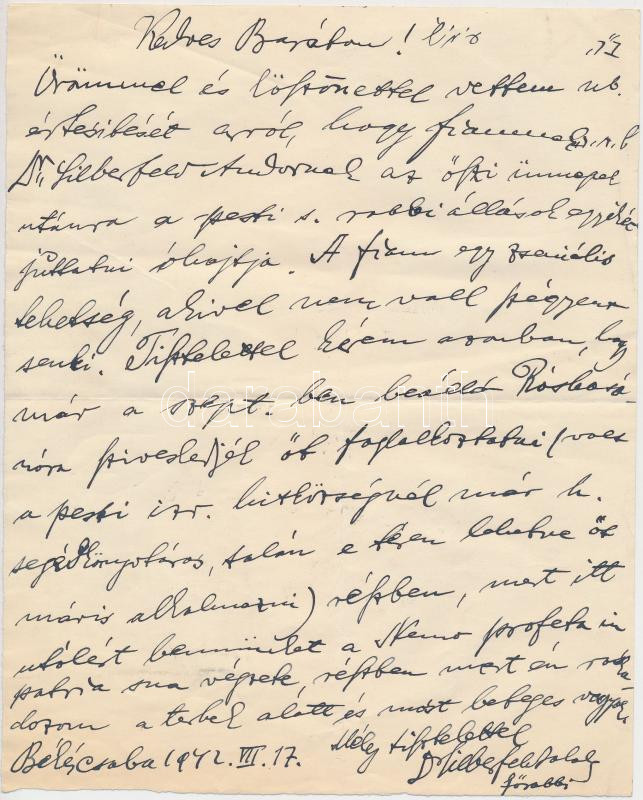 Kedves Barátom!
Örömmel és köszönettel vettem nb.
értesítését arról, hogy fiamnak
Dr. Silberfeld Andornak az őszi ünnepek
utánra a pesti s. rabbi állások egyikét
juttatni óhajtja. A fiam egy zseniális
tehetség, akivel nem vall szégyent
senki. Tisztelettel kérem azonban, hogy
már a szept. ben beálló Roshasá-
nóra sziveskedjék őt foglalkoztatni (vacs
a pesti izr. hitközségnél már h.
segédkönyvtáros, talán e téren lehetne őt
máris alkalmazni) részben, mert itt
utólért bennünket a Nemo profeta in
patria sua végzete, részben mert én
dozom a terhek alatt és most beteges vagyok.
Mély tisztelettel
Békéscsaba 1942. VIII. 17.
Dr Silberfeld
főrabbi
darabanth